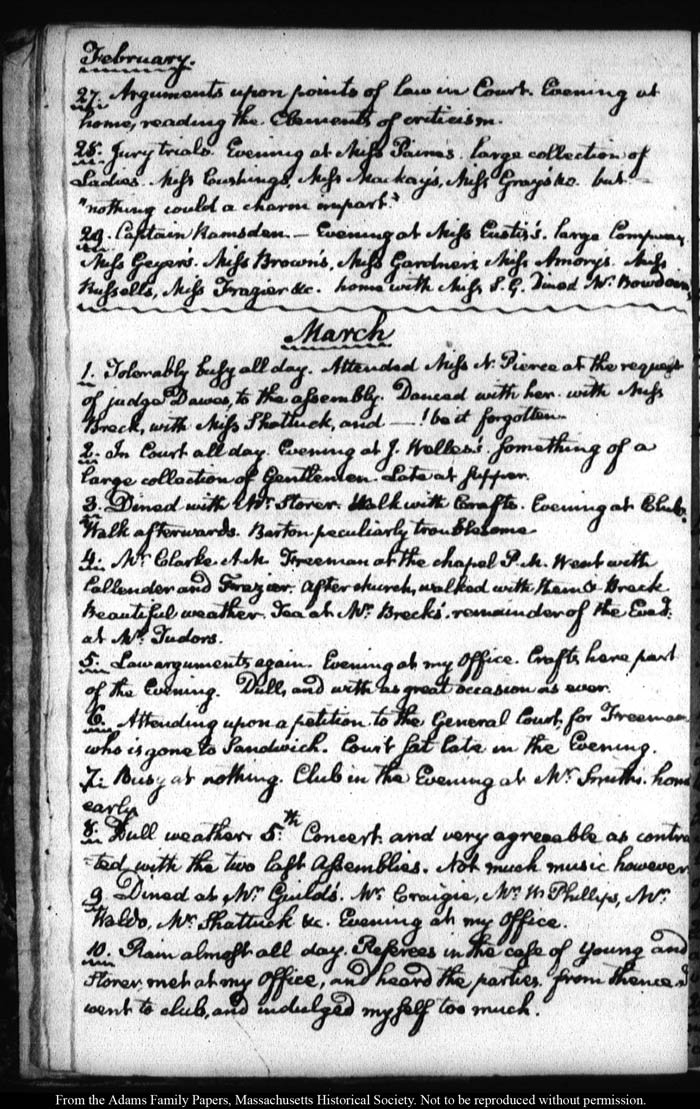 February.
27. Arguments upon points of law in Court. Evening at
home, reading the Elements of criticism.
28. Jury trials. Evening at Miss Paine's. large collection of
Ladies. Miss Cushings, Miss Mackay's, Miss Gray's &c. but
"nothing could a charm impart."
29. Captain Ramsden. — Evening at Miss Eustis's. large Company
Miss Geyer's. Miss Brown's, Miss Gardners, Miss Amorys. Miss
Russells, Miss Frazier &c. home with Miss S. G. Dined Mr. Bowdoin
March
1. Tolerably busy all day. Attended Miss N. Pierce at the request
of judge Dawes, to the assembly. Danced with her. with Miss
Breck, with Miss Shattuck, and —! be it forgotten.
2. In Court all day. Evening at J. Welles's. Something of a
large collection of Gentlemen. Late at supper.
3. Dined with Mr. Storer. Walk with Crafts. Evening at Club.
Walk afterwards. Barton peculiarly troublesome
4. Mr. Clarke A.M. Freeman at the chapel P.M. Went with
Callender and Frazier. After church, walked with them & Breck
Beautiful weather. Tea at Mr. Breck's. remainder of the Eveg.
at Mr. Tudors.
5. Law arguments again. Evening at my Office. Crafts here part
of the Evening. Dull, and with as great occasion as ever.
6. Attending upon a petition to the General Court, for Freeman
who is gone to Sandwich. Court sat late in the Evening.
7. Busy at nothing. Club in the Evening at Mr. Smiths. home
early
8. Dull weather. 5th. Concert and very agreeable as contra
-ted with the two last Assemblies. Not much music however
9. Dined at Mr. Guild's. Mr. Craigie, Mr. W Phillips, Mr.
Waldo, Mr. Shattuck &c. Evening at my Office.
10. Rain almost all day. Referees in the case of Young and
Storer, met at my Office, and heard the parties. from thence
went to club, and indulged myself too much.
From the Adams Family Papers, Massachusetts Historical Society. Not to be reproduced without permission.